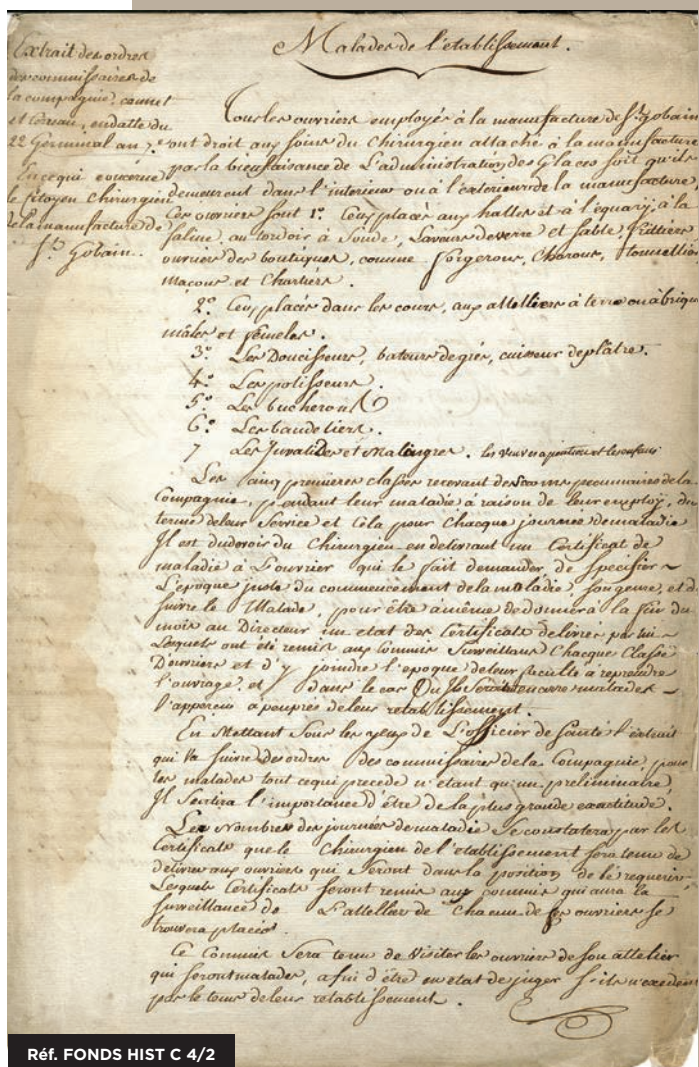 Malades de l'etablissement.
Extrait des ordres
des commissaires de
la compagnie,
et Cereau, en datte du
22 Germinal an 7.e
En ce qui concerne
le Citoyen Chirurgien
de la manufacture de
St. Gobain.
Tous les ouvriers employés à la manufacture de St. Gobain
ont droit aux soins du Chirurgien attaché à la manufacture
par la bienfaisance de L'administration des Glaces soit qu'ils
demeurent dans l'interieur ou à l'exterieur de la manufacture,
Ces ouvriers sont 1.º Ceux placés aux halles et à l'équari, à la
saline, au tordoir à Soude, Laveurs de verre et sable,
ouvriers des boutiques, comme forgerons, Charons, tonnellier
maçons et Chartiers.
2.º Ceux placés dans les cours, aux attelliers à terre ou à brique
mâles et femeles.
3.º Les Doucisseurs, bateurs de grés, cuisseur de plâtre.
4.º Les polisseurs.
5.º Les bucherons
6.º Les bandeliers.
7 Les Invalides et Malingres. les veuves a pention et les enfans
Les cinq premieres classes recevant des secours pecuniaires de la
Compagnie, pendant leur maladie à raison de leur employ, du
terme de leur Service et Cela pour Chacque journée de maladie
Il est du devoir du Chirurgien en delivrant un Certificat de
maladie à L'ouvrier qui le fait demander de specifier
L'epoque juste du commencement de la maladie, son genre, et de
suivre le Malade, pour être à même de donner à la fin du
mois au Directeur un etat des Certificats delivrés par lui
Lesquels ont été remis aux Commis Surveillans Chacque Classe
D'ouvriers et d'y joindre l'epoque de leur faculté à reprendre
l'ouvrage, et dans le cas Ou Ils Seroient encore malades
l'appercu a peuprés de leur retablissement.
En Mettant Sous les yeux de L'officier de Santé l'extrait
qui Va Suivre des ordres des commissaires de la Compagnie pour
les malades tout ce qui precede n'etant qu'un preliminaire,
Il Sentira l'importance d'être de la plus grande exactitude.
Les Nombres des journées de maladie Se constatera par les
Certificats que le Chirurgien de l'etablissement sera tenu de
delivrer aux ouvriers qui Seront dans la position de le requerir
Lesquels Certificats seront remis aux commis qui aura la
surveillance de L'attellier de Chacun de ses ouvriers se
trouvera placés.
Ce Commis Sera tenu de Visiter les ouvriers de son attelier
qui seront malades, afin d'être en etat de juger s'ils n'excedent
pas le tems de leur retablissement.
Réf. FONDS HIST C 4/2